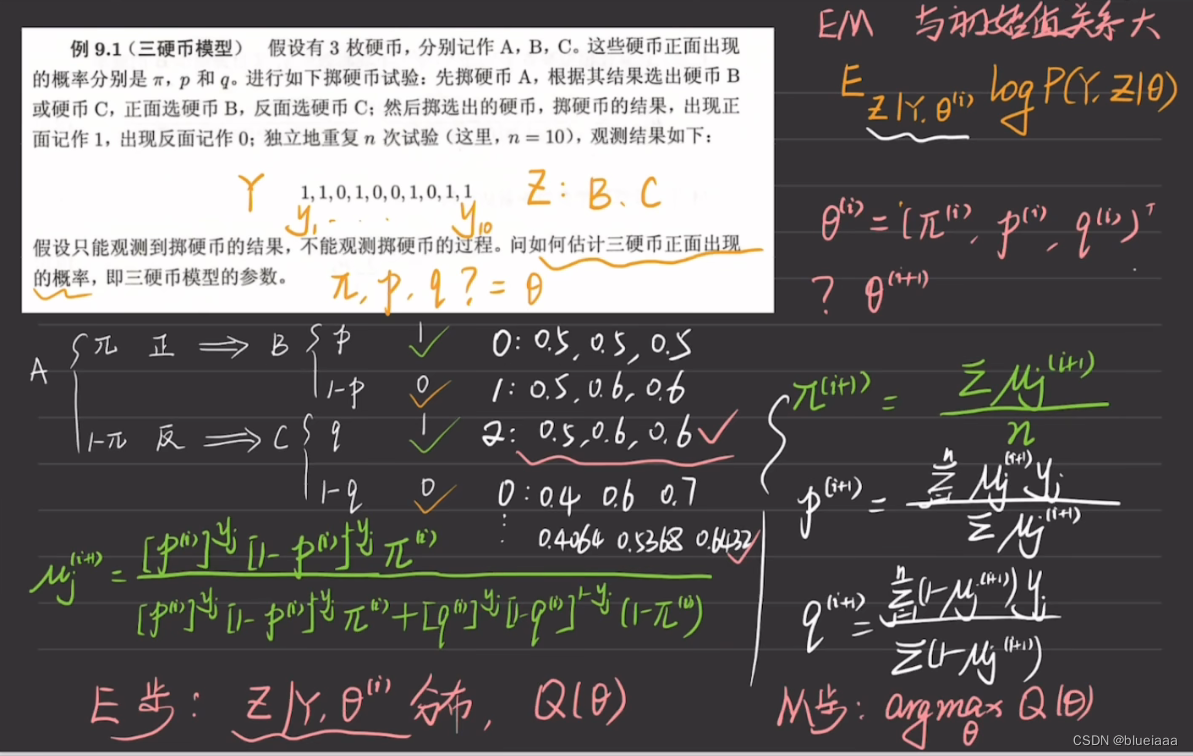 EM 与初始值关系大
例 9.1（三硬币模型） 假设有 3 枚硬币，分别记作 A，B，C。这些硬币正面出现
的概率分别是 π，p 和 q。进行如下掷硬币试验：先掷硬币 A，根据其结果选出硬币 B
或硬币 C，正面选硬币 B，反面选硬币 C；然后掷选出的硬币，掷硬币的结果，出现正
面记作 1，出现反面记作 0；独立地重复 n 次试验（这里，n = 10），观测结果如下：
E_{Z|Y,θ^{(i)}} log P(Y,Z|θ)
Y 1,1,0,1,0,0,1,0,1,1 Z: B、C
y_1 ... y_10
假设只能观测到掷硬币的结果，不能观测掷硬币的过程。问如何估计三硬币正面出现
的概率，即三硬币模型的参数。
π, p, q ? = θ
θ^{(i)} = (π^{(i)}, p^{(i)}, q^{(i)})^T
? θ^{(i+1)}
A
π 正 ⟹ B p 1
1-p 0
1-π 反 ⟹ C q 1
1-q 0
0: 0.5, 0.5, 0.5
1: 0.5, 0.6, 0.6
2: 0.5, 0.6, 0.6
0: 0.4 0.6 0.7
⋮ 0.4064 0.5368 0.6432
μ_j^{(i+1)} = [p^{(i)}]^{y_j} [1-p^{(i)}]^{1-y_j} π^{(i)}
[p^{(i)}]^{y_j} [1-p^{(i)}]^{1-y_j} π^{(i)} + [q^{(i)}]^{y_j} [1-q^{(i)}]^{1-y_j} (1-π^{(i)})
π^{(i+1)} = Σ μ_j^{(i+1)} / n
p^{(i+1)} = Σ^n μ_j^{(i+1)} y_j / Σ μ_j^{(i+1)}
q^{(i+1)} = Σ^n (1-μ_j^{(i+1)}) y_j / Σ (1-μ_j^{(i+1)})
E步: Z|Y,θ^{(i)} 分布, Q(θ)
M步: argmax_θ Q(θ)
CSDN @blueiaaa